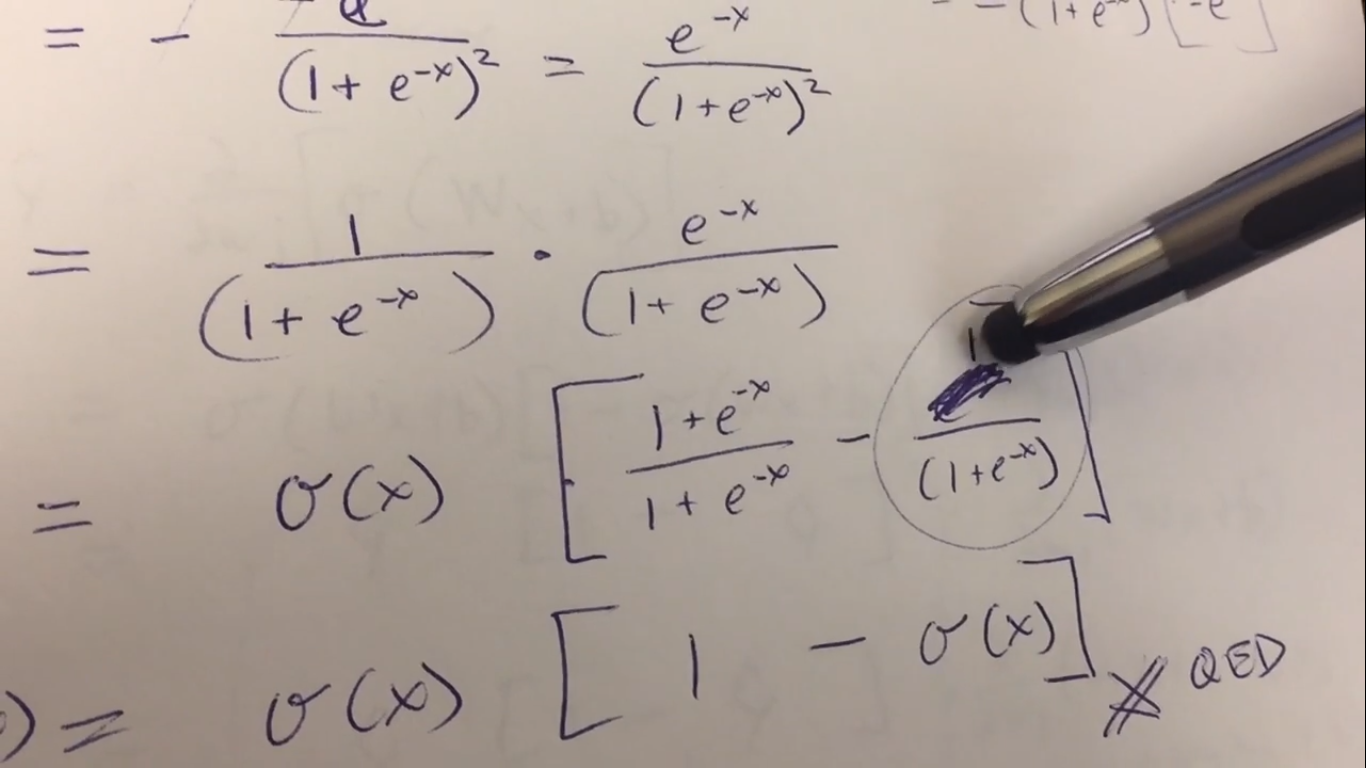 = - / (1 + e^-x)^2 = e^-x / (1 + e^-x)^2
- (1 + e^-x) [-e ]
= 1 / (1 + e^-x) · e^-x / (1 + e^-x)
= σ(x) [ (1 + e^-x) / (1 + e^-x) - 1 / (1 + e^-x) ]
) = σ(x) [ 1 - σ(x) ] QED